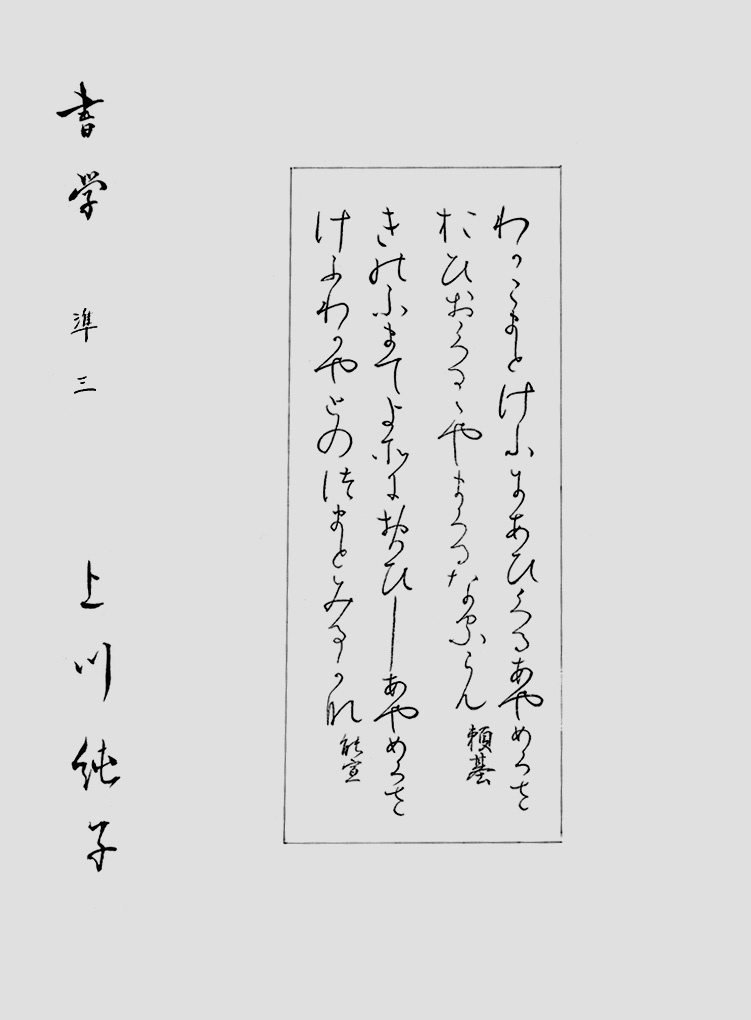 わかこまとけふにあひくるあやめくさ
おひおくるゝやまくるなるらん
頼基
きのふまてよそにおもひしあやめくさ
けふわかやとのつまとみるかな
能宣
書学 準三 上川純子